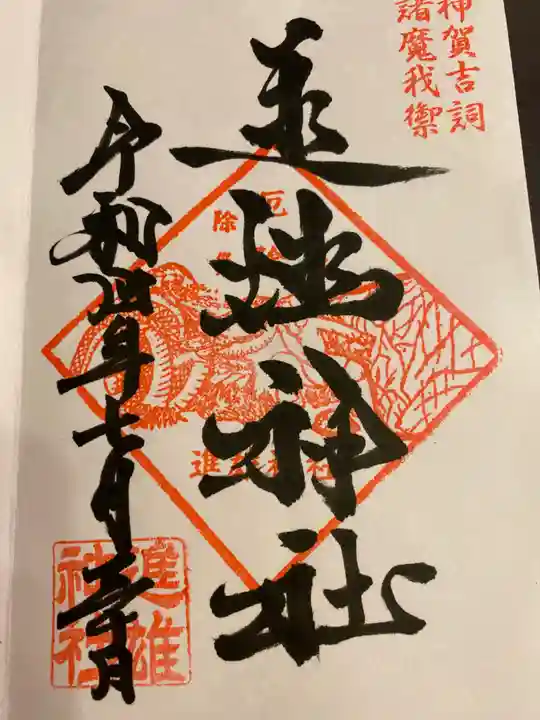 神賀吉詞
諸魔我禦
進雄神社
厄除
進雄神社
令和四年七月六日
進雄
神社